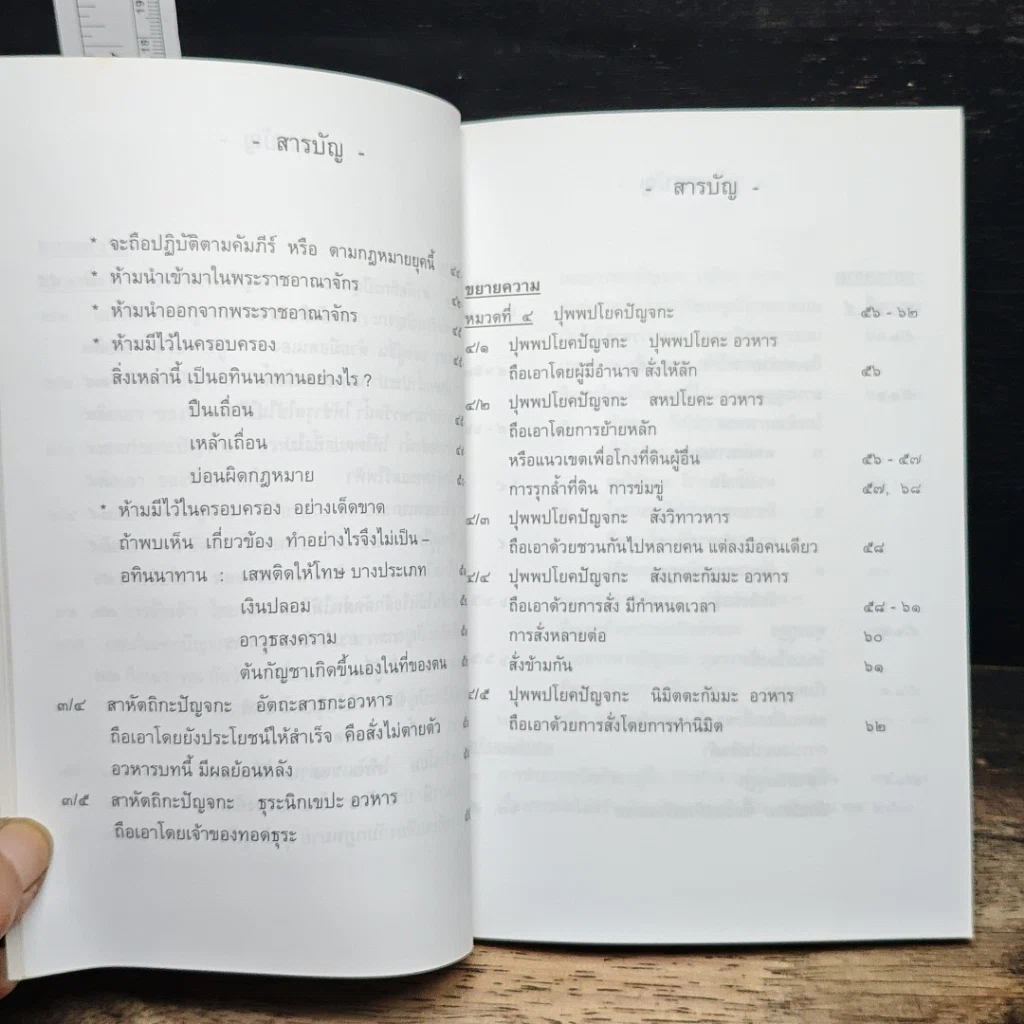 - สารบัญ -
* จะถือปฏิบัติตามคัมภีร์ หรือ ตามกฎหมายยุคนี้
* ห้ามนำเข้ามาในพระราชอาณาจักร
* ห้ามนำออกจากพระราชอาณาจักร
* ห้ามมีไว้ในครอบครอง
สิ่งเหล่านี้ เป็นอทินนาทานอย่างไร ?
ปืนเถื่อน
เหล้าเถื่อน
บ่อนผิดกฎหมาย
* ห้ามมีไว้ในครอบครอง อย่างเด็ดขาด
ถ้าพบเห็น เกี่ยวข้อง ทำอย่างไรจึงไม่เป็น –
อทินนาทาน : เสพติดให้โทษ บางประเภท
เงินปลอม
อาวุธสงคราม
ต้นกัญชาเกิดขึ้นเองในที่ของตน
๓/๔ สาหัตถิกะปัญจกะ อัตถะสาธกะอวหาร
ถือเอาโดยยังประโยชน์ให้สำเร็จ คือสั่งไม่ตายตัว
อวหารบทนี้ มีผลย้อนหลัง
๓/๕ สาหัตถิกะปัญจกะ ธุระนิกเขปะ อวหาร
ถือเอาโดยเจ้าของทอดธุระ
- สารบัญ -
ขยายความ
หมวดที่ ๔ ปุพพปโยคปัญจกะ ๕๖ - ๖๒
๔/๑ ปุพพปโยคปัญจกะ ปุพพปโยคะ อวหาร
ถือเอาโดยผู้มีอำนาจ สั่งให้ลัก ๕๖
๔/๒ ปุพพปโยคปัญจกะ สหปโยคะ อวหาร
ถือเอาโดยการย้ายหลัก
หรือแนวเขตเพื่อโกงที่ดินผู้อื่น ๕๖ - ๕๗
การรุกล้ำที่ดิน การข่มขู่ ๕๗, ๖๘
๔/๓ ปุพพปโยคปัญจกะ สังวิทาวหาร
ถือเอาด้วยชวนกันไปหลายคน แต่ลงมือคนเดียว ๕๘
๔/๔ ปุพพปโยคปัญจกะ สังเกตะกัมมะ อวหาร
ถือเอาด้วยการสั่ง มีกำหนดเวลา ๕๘ - ๖๑
การสั่งหลายต่อ ๖๐
สั่งข้ามกัน ๖๑
๔/๕ ปุพพปโยคปัญจกะ นิมิตตะกัมมะ อวหาร
ถือเอาด้วยการสั่งโดยการทำนิมิต ๖๒